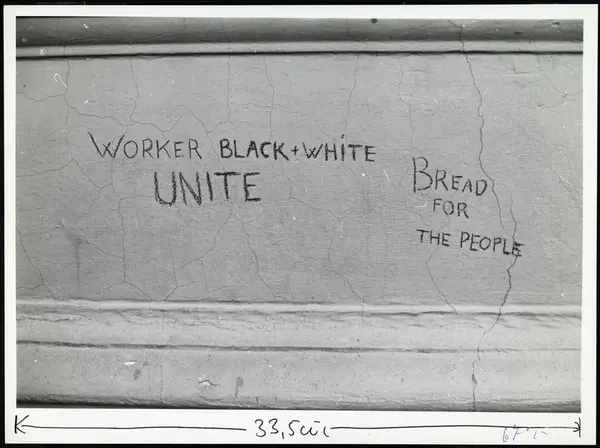 WORKER BLACK + WHiTE
UNITE
BREAD
FOR
THE PEOPLE
33,5cm